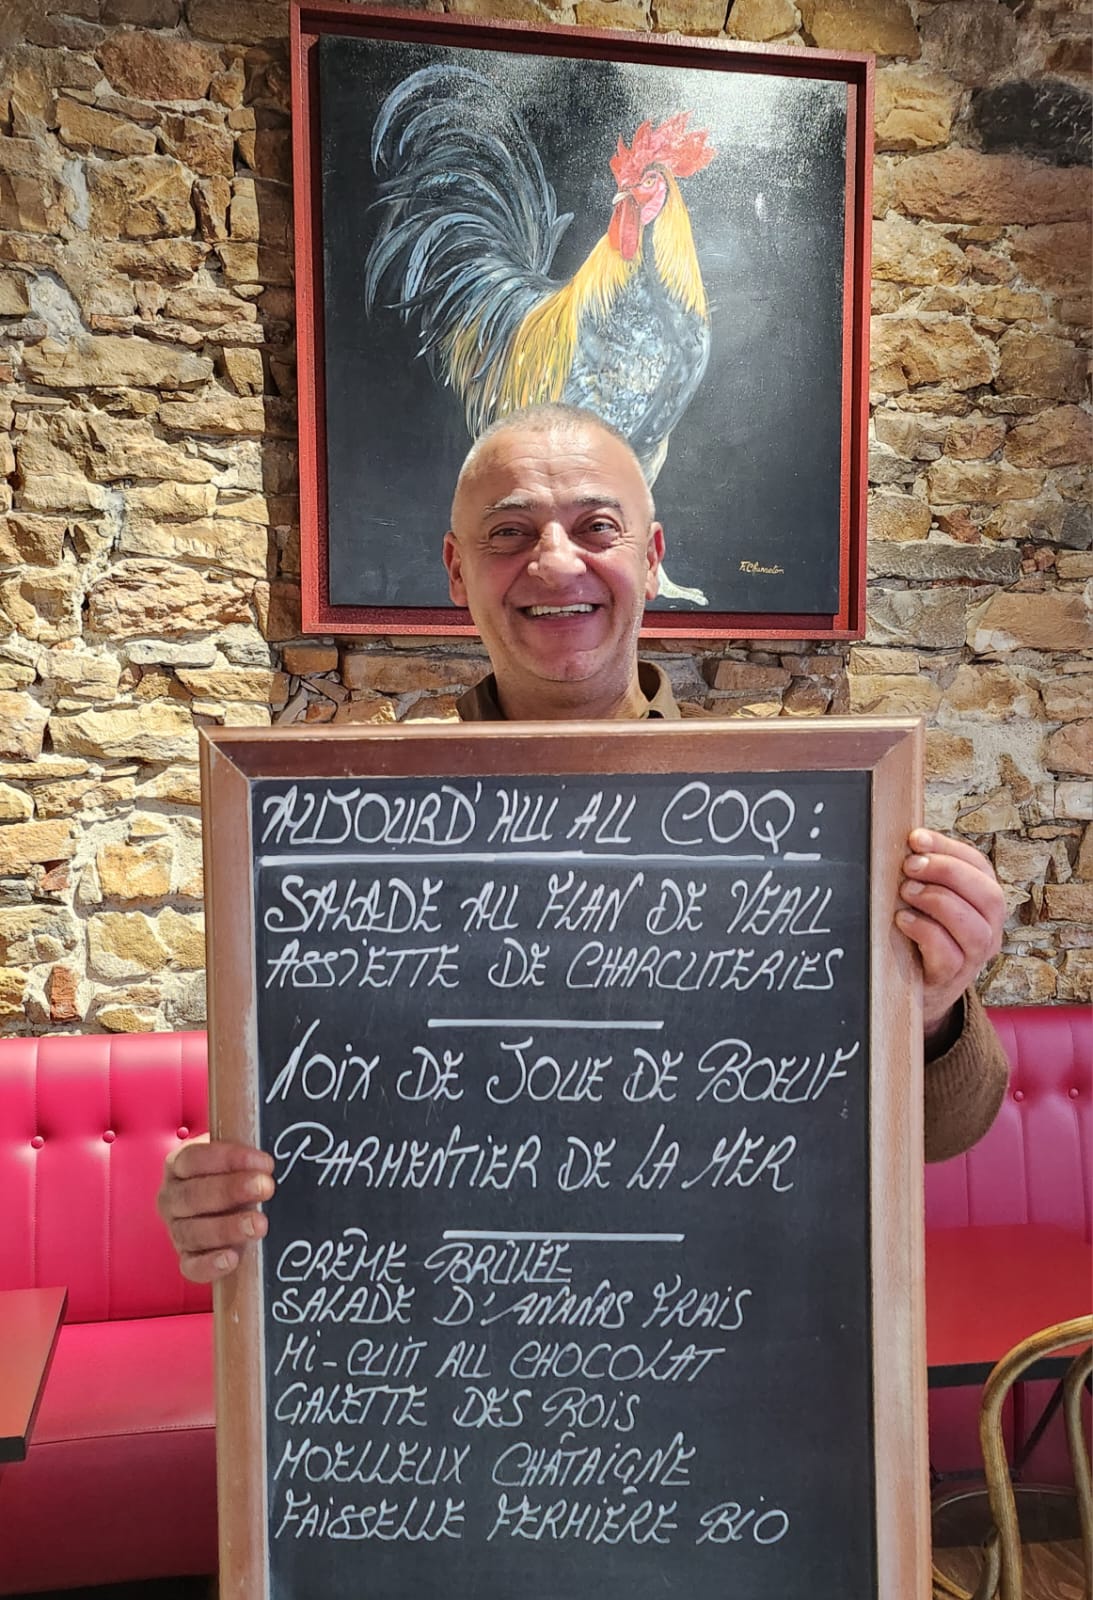 F. Chumeton
AUJOURD'HUI AU COQ :
SALADE AU FLAN DE VEAU
ASSIETTE DE CHARCUTERIES
NOIX DE JOUE DE BOEUF
PARMENTIER DE LA MER
CRÊME BRÛLÉE
SALADE D'ANANAS FRAIS
MI-CUIT AU CHOCOLAT
GALETTE DES ROIS
MOELLEUX CHÂTAIGNE
FAISSELLE FERMIÈRE BIO